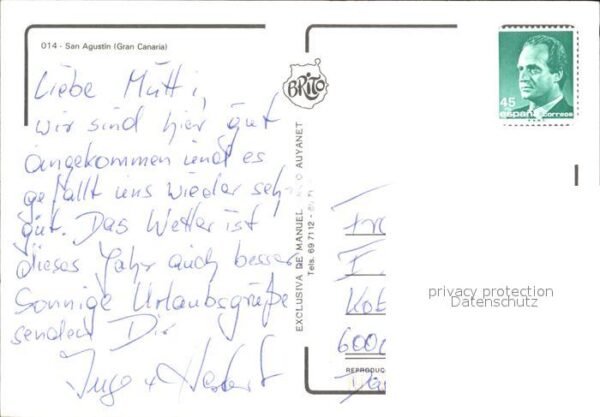 014 - San Agustin (Gran Canaria)
Liebe Mutti,
wir sind hier gut
angekommen und es
gefällt uns wieder sehr
gut. Das Wetter ist
dieses Jahr auch besser
Sonnige Urlaubsgrüße
senden Dir
Inge + Herbert
BRITO
EXCLUSIVA DE MANUEL AUYANET
Tels. 69 7112 -
45
españa correos
600
REPRODUC
privacy protection
Datenschutz